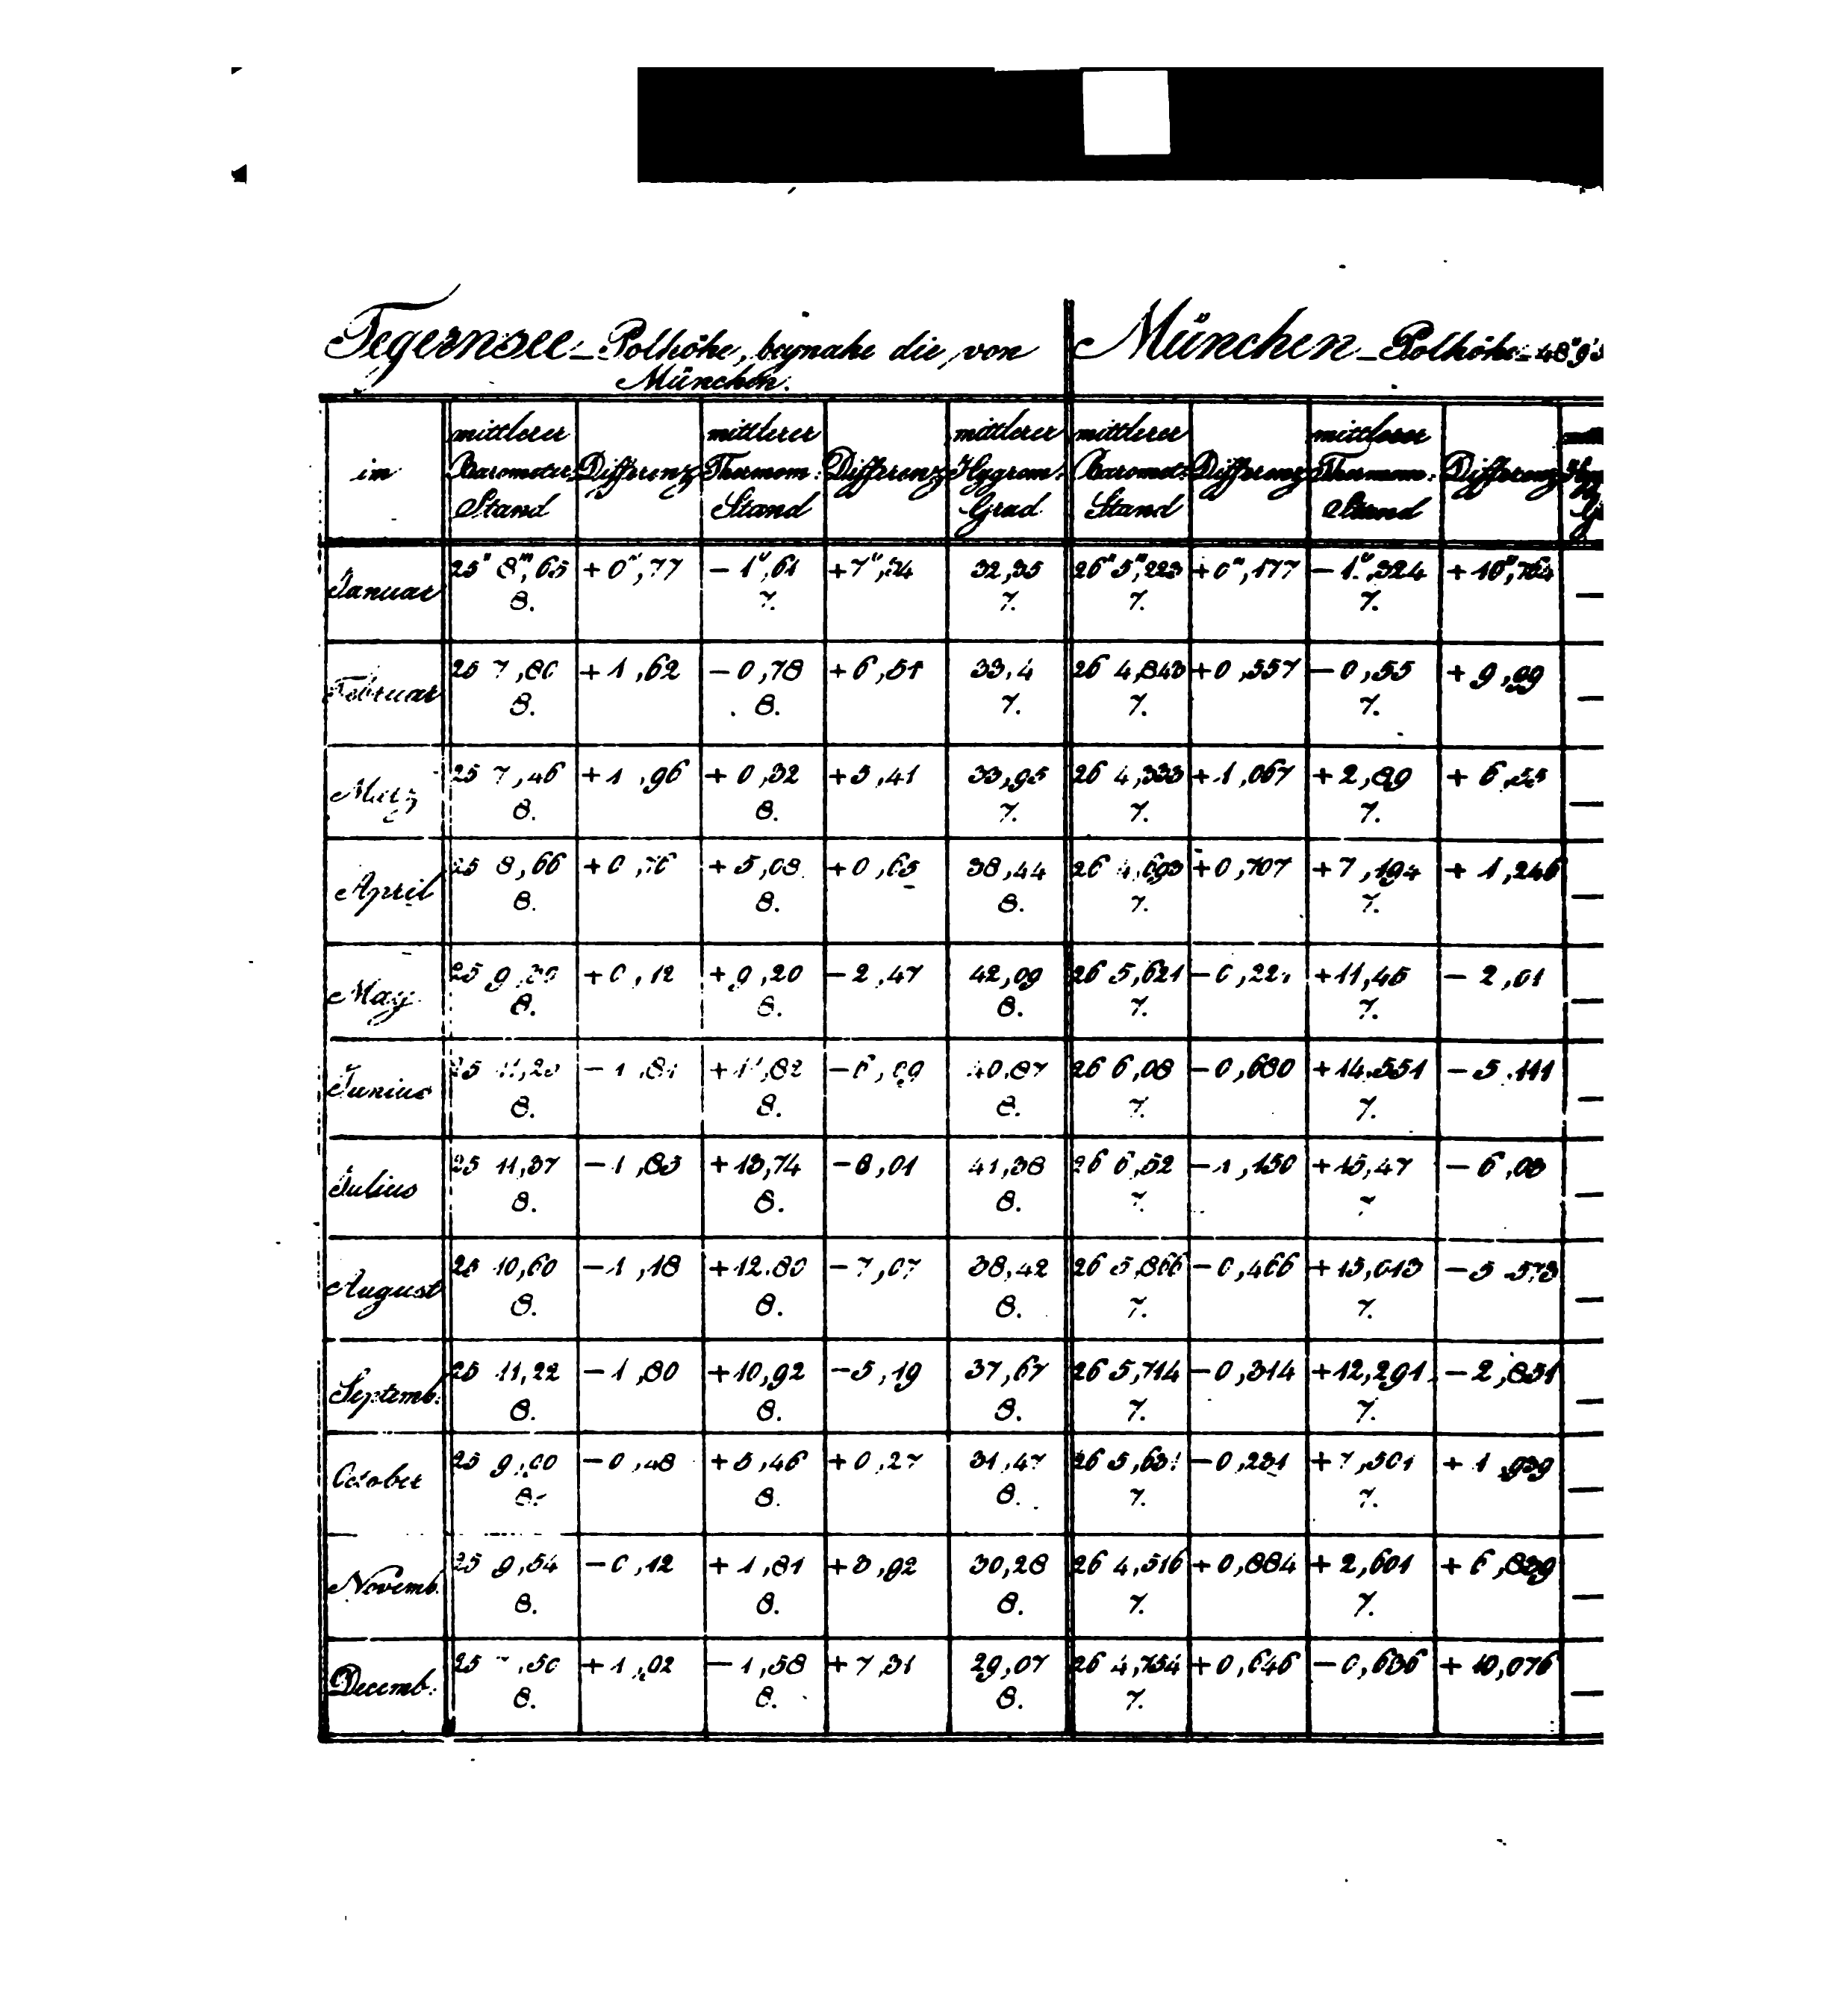 Tegernsee - Polhöhe, beynahe die von München.
München - Polhöhe - 48° 9'
im | mittlerer Barometer: Stand | Differenz | mittlerer Thermom: Stand | Differenz | mittlerer Hygrom: Grad | mittlerer Baromet: Stand | Differenz | mittlerer Thermom: Stand | Differenz
Januar | 25" 8"',65 | +0"',77 | -1°,61 | +7°,34 | 32,35 | 26" 5"',223 | +0"',177 | -1°,324 | +10°,764 | —
8. | 7. | 7. | 7. | 7.
Februar | 25 7,80 | +1,62 | -0,78 | +6,51 | 33,4 | 26 4,843 | +0,557 | -0,55 | +9,99 | —
8. | 8. | 7. | 7. | 7.
März | 25 7,46 | +1,96 | +0,32 | +5,41 | 33,95 | 26 4,333 | +1,067 | +2,89 | +6,55 | —
8. | 8. | 7. | 7. | 7.
April | 25 8,66 | +0,76 | +5,08 | +0,65 | 38,44 | 26 4,693 | +0,707 | +7,194 | +1,246 | —
8. | 8. | 8. | 7. | 7.
May | 25 9,30 | +0,12 | +9,20 | -2,47 | 42,09 | 26 5,621 | -0,221 | +11,45 | -2,01 | —
8. | 8. | 8. | 7. | 7.
Junius | 25 11,23 | -1,81 | +11,82 | -6,09 | 40,87 | 26 6,08 | -0,680 | +14,551 | -5,111 | —
8. | 8. | 8. | 7. | 7.
Julius | 25 11,37 | -1,85 | +13,74 | -8,01 | 41,38 | 26 6,52 | -1,150 | +15,47 | -6,03 | —
8. | 8. | 8. | 7. | 7
August | 25 10,60 | -1,18 | +12,80 | -7,07 | 38,42 | 26 5,866 | -0,466 | +15,013 | -5,573 | —
8. | 8. | 8. | 7. | 7.
Septemb: | 25 11,22 | -1,80 | +10,92 | -5,19 | 37,67 | 26 5,714 | -0,314 | +12,291 | -2,851 | —
8. | 8. | 8. | 7. | 7.
October | 25 9,90 | -0,48 | +5,46 | +0,27 | 31,47 | 26 5,631 | -0,231 | +7,501 | +1,939 | —
8. | 8. | 8. | 7. | 7.
Novemb. | 25 9,54 | -0,12 | +1,81 | +3,92 | 30,28 | 26 4,516 | +0,884 | +2,601 | +6,839 | —
8. | 8. | 8. | 7. | 7.
Decemb: | 25 | +1,02 | -1,58 | +7,31 | 29,07 | 26 4,754 | +0,646 | -0,636 | +10,076 | —
8. | 8. | 8. | 7.